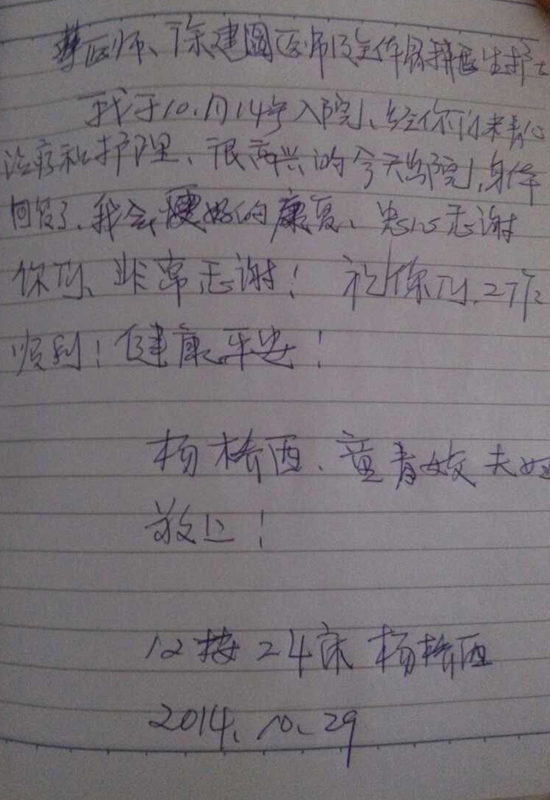 医师、徐建国医师及全体 医生护士
我于10.月14号入院、经你们精心
治疗和护理、很高兴的今天出院,身体
回复了、我会更好的康复、衷心感谢
你们、非常感谢！祝你们、工作
顺利！健康平安！
杨桥西、童青 夫妇
敬上！
12楼24床 杨桥西
2014、10、29